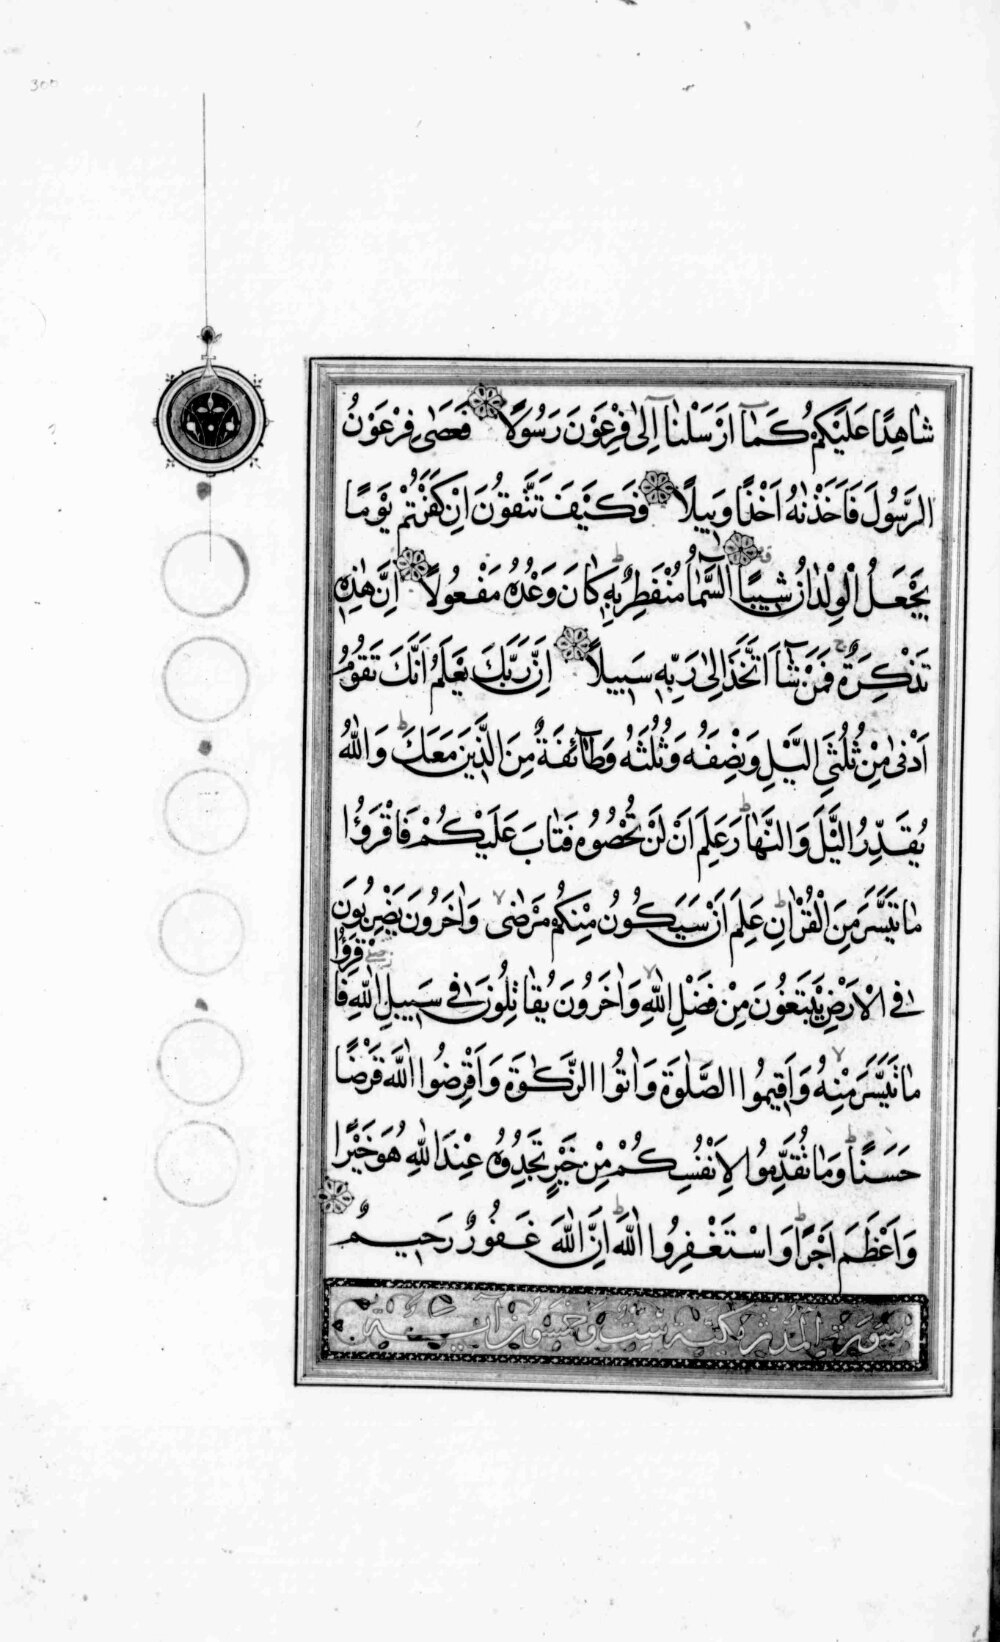 300
شَاهِدًا عَلَيْكُمْ كَمَآ اَرْسَلْنَآ اِلٰى فِرْعَوْنَ رَسُوْلًا فَعَصٰى فِرْعَوْنُ
الرَّسُوْلَ فَاَخَذْنٰهُ اَخْذًا وَبِيْلًا فَكَيْفَ تَتَّقُوْنَ اِنْ كَفَرْتُمْ يَوْمًا
يَجْعَلُ الْوِلْدَانَ شِيْبًا السَّمَآءُ مُنْفَطِرٌ بِهٖ كَانَ وَعْدُهُ مَفْعُوْلًا اِنَّ هٰذِهٖ
تَذْكِرَةٌ فَمَنْ شَآءَ اتَّخَذَ اِلٰى رَبِّهٖ سَبِيْلًا اِنَّ رَبَّكَ يَعْلَمُ اَنَّكَ تَقُوْمُ
اَدْنٰى مِنْ ثُلُثَيِ الَّيْلِ وَنِصْفَهُ وَثُلُثَهُ وَطَآئِفَةٌ مِنَ الَّذِيْنَ مَعَكَ وَاللّٰهُ
يُقَدِّرُ الَّيْلَ وَالنَّهَارَ عَلِمَ اَنْ لَنْ تُحْصُوْهُ فَتَابَ عَلَيْكُمْ فَاقْرَؤُا
مَا تَيَسَّرَ مِنَ الْقُرْاٰنِ عَلِمَ اَنْ سَيَكُوْنُ مِنْكُمْ مَرْضٰى وَاٰخَرُوْنَ يَضْرِبُوْنَ
فِي الْاَرْضِ يَبْتَغُوْنَ مِنْ فَضْلِ اللّٰهِ وَاٰخَرُوْنَ يُقَاتِلُوْنَ فِيْ سَبِيْلِ اللّٰهِ فَاقْرَؤُا
مَا تَيَسَّرَ مِنْهُ وَاَقِيْمُوا الصَّلٰوةَ وَاٰتُوا الزَّكٰوةَ وَاَقْرِضُوا اللّٰهَ قَرْضًا
حَسَنًا وَمَا تُقَدِّمُوْا لِاَنْفُسِكُمْ مِنْ خَيْرٍ تَجِدُوْهُ عِنْدَ اللّٰهِ هُوَ خَيْرًا
وَاَعْظَمَ اَجْرًا وَاسْتَغْفِرُوا اللّٰهَ اِنَّ اللّٰهَ غَفُوْرٌ رَحِيْمٌ
سورة المدثر مكية ست وخمسون آية